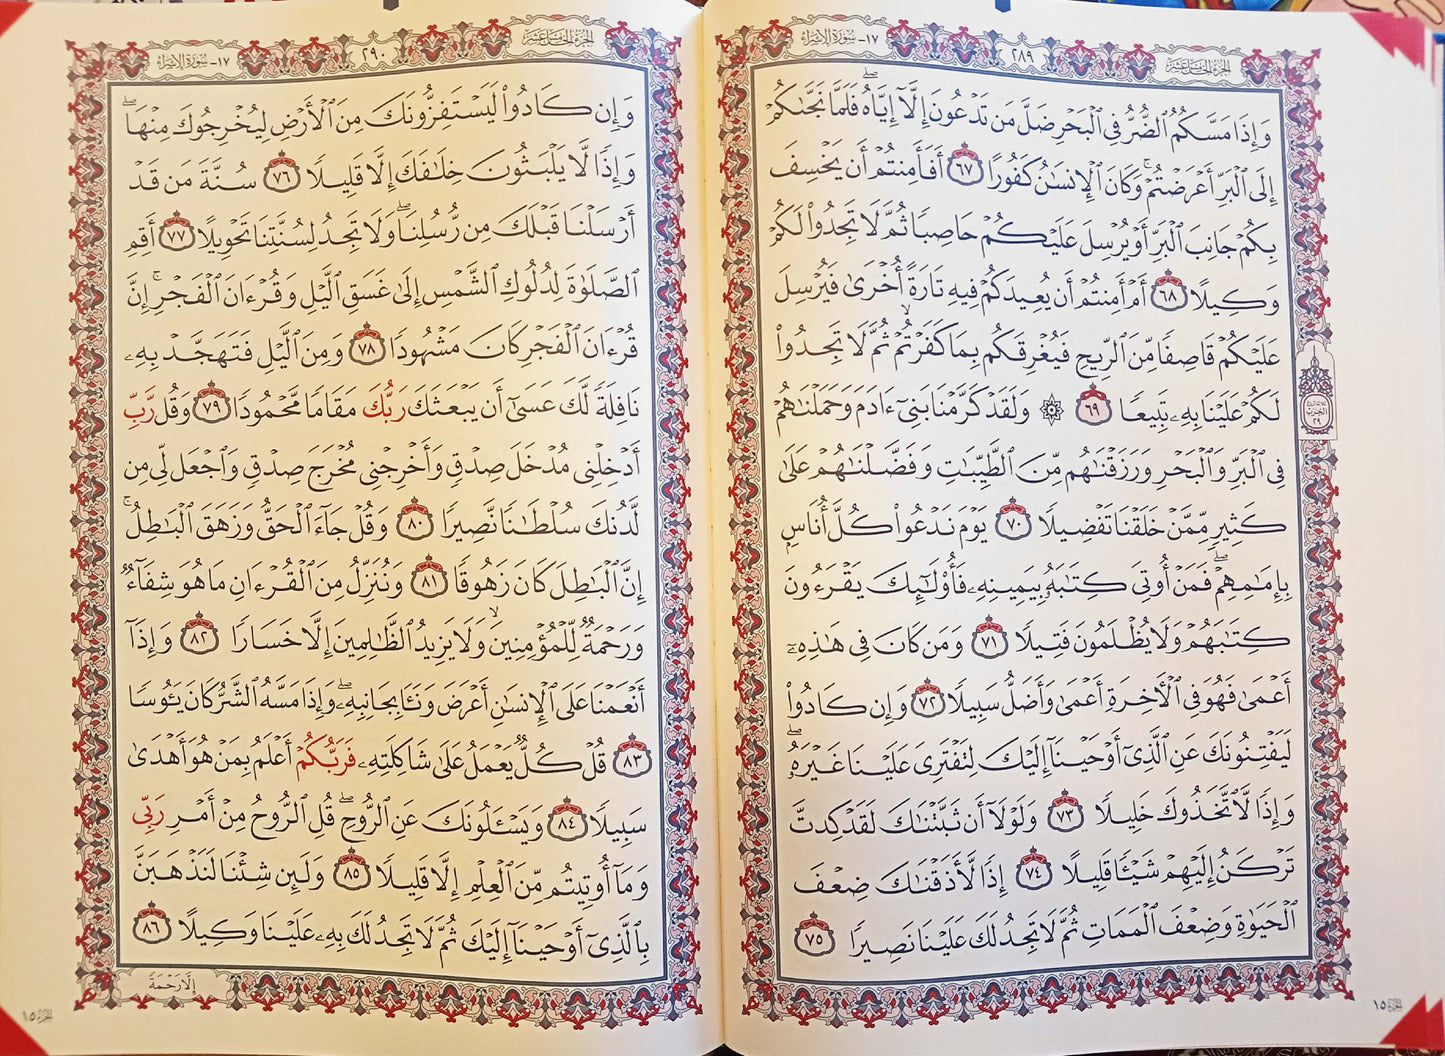 الجزء الخامس عشر
٢٨٩
١٧- سورة الإسراء
وَإِذَا مَسَّكُمُ ٱلضُّرُّ فِي ٱلۡبَحۡرِ ضَلَّ مَن تَدۡعُونَ إِلَّآ إِيَّاهُۖ فَلَمَّا نَجَّىٰكُمۡ
إِلَى ٱلۡبَرِّ أَعۡرَضۡتُمۡۚ وَكَانَ ٱلۡإِنسَٰنُ كَفُورًا ٦٧ أَفَأَمِنتُمۡ أَن يَخۡسِفَ
بِكُمۡ جَانِبَ ٱلۡبَرِّ أَوۡ يُرۡسِلَ عَلَيۡكُمۡ حَاصِبٗا ثُمَّ لَا تَجِدُواْ لَكُمۡ
وَكِيلًا ٦٨ أَمۡ أَمِنتُمۡ أَن يُعِيدَكُمۡ فِيهِ تَارَةً أُخۡرَىٰ فَيُرۡسِلَ
عَلَيۡكُمۡ قَاصِفٗا مِّنَ ٱلرِّيحِ فَيُغۡرِقَكُم بِمَا كَفَرۡتُمۡ ثُمَّ لَا تَجِدُواْ
لَكُمۡ عَلَيۡنَا بِهِۦ تَبِيعٗا ٦٩ ۞ وَلَقَدۡ كَرَّمۡنَا بَنِيٓ ءَادَمَ وَحَمَلۡنَٰهُمۡ
فِي ٱلۡبَرِّ وَٱلۡبَحۡرِ وَرَزَقۡنَٰهُم مِّنَ ٱلطَّيِّبَٰتِ وَفَضَّلۡنَٰهُمۡ عَلَىٰ
كَثِيرٖ مِّمَّنۡ خَلَقۡنَا تَفۡضِيلٗا ٧٠ يَوۡمَ نَدۡعُواْ كُلَّ أُنَاسِۭ
بِإِمَٰمِهِمۡۖ فَمَنۡ أُوتِيَ كِتَٰبَهُۥ بِيَمِينِهِۦ فَأُوْلَٰٓئِكَ يَقۡرَءُونَ
كِتَٰبَهُمۡ وَلَا يُظۡلَمُونَ فَتِيلٗا ٧١ وَمَن كَانَ فِي هَٰذِهِۦٓ
أَعۡمَىٰ فَهُوَ فِي ٱلۡأٓخِرَةِ أَعۡمَىٰ وَأَضَلُّ سَبِيلٗا ٧٢ وَإِن كَادُواْ
لَيَفۡتِنُونَكَ عَنِ ٱلَّذِيٓ أَوۡحَيۡنَآ إِلَيۡكَ لِتَفۡتَرِيَ عَلَيۡنَا غَيۡرَهُۥۖ
وَإِذٗا لَّٱتَّخَذُوكَ خَلِيلٗا ٧٣ وَلَوۡلَآ أَن ثَبَّتۡنَٰكَ لَقَدۡ كِدتَّ
تَرۡكَنُ إِلَيۡهِمۡ شَيۡـٔٗا قَلِيلًا ٧٤ إِذٗا لَّأَذَقۡنَٰكَ ضِعۡفَ
ٱلۡحَيَوٰةِ وَضِعۡفَ ٱلۡمَمَاتِ ثُمَّ لَا تَجِدُ لَكَ عَلَيۡنَا نَصِيرٗا ٧٥
الحزب
٢٩
الجزء ١٥
الجزء الخامس عشر
٢٩٠
١٧- سورة الإسراء
وَإِن كَادُواْ لَيَسۡتَفِزُّونَكَ مِنَ ٱلۡأَرۡضِ لِيُخۡرِجُوكَ مِنۡهَاۖ
وَإِذٗا لَّا يَلۡبَثُونَ خِلَٰفَكَ إِلَّا قَلِيلٗا ٧٦ سُنَّةَ مَن قَدۡ
أَرۡسَلۡنَا قَبۡلَكَ مِن رُّسُلِنَاۖ وَلَا تَجِدُ لِسُنَّتِنَا تَحۡوِيلًا ٧٧ أَقِمِ
ٱلصَّلَوٰةَ لِدُلُوكِ ٱلشَّمۡسِ إِلَىٰ غَسَقِ ٱلَّيۡلِ وَقُرۡءَانَ ٱلۡفَجۡرِۚ إِنَّ
قُرۡءَانَ ٱلۡفَجۡرِ كَانَ مَشۡهُودٗا ٧٨ وَمِنَ ٱلَّيۡلِ فَتَهَجَّدۡ بِهِۦ
نَافِلَةٗ لَّكَ عَسَىٰٓ أَن يَبۡعَثَكَ رَبُّكَ مَقَامٗا مَّحۡمُودٗا ٧٩ وَقُل رَّبِّ
أَدۡخِلۡنِي مُدۡخَلَ صِدۡقٖ وَأَخۡرِجۡنِي مُخۡرَجَ صِدۡقٖ وَٱجۡعَل لِّي مِن
لَّدُنكَ سُلۡطَٰنٗا نَّصِيرٗا ٨٠ وَقُلۡ جَآءَ ٱلۡحَقُّ وَزَهَقَ ٱلۡبَٰطِلُۚ
إِنَّ ٱلۡبَٰطِلَ كَانَ زَهُوقٗا ٨١ وَنُنَزِّلُ مِنَ ٱلۡقُرۡءَانِ مَا هُوَ شِفَآءٞ
وَرَحۡمَةٞ لِّلۡمُؤۡمِنِينَ وَلَا يَزِيدُ ٱلظَّٰلِمِينَ إِلَّا خَسَارٗا ٨٢ وَإِذَآ
أَنۡعَمۡنَا عَلَى ٱلۡإِنسَٰنِ أَعۡرَضَ وَنَـَٔا بِجَانِبِهِۦۖ وَإِذَا مَسَّهُ ٱلشَّرُّ كَانَ يَـُٔوسٗا
٨٣ قُلۡ كُلّٞ يَعۡمَلُ عَلَىٰ شَاكِلَتِهِۦ فَرَبُّكُمۡ أَعۡلَمُ بِمَنۡ هُوَ أَهۡدَىٰ
سَبِيلٗا ٨٤ وَيَسۡـَٔلُونَكَ عَنِ ٱلرُّوحِۖ قُلِ ٱلرُّوحُ مِنۡ أَمۡرِ رَبِّي
وَمَآ أُوتِيتُم مِّنَ ٱلۡعِلۡمِ إِلَّا قَلِيلٗا ٨٥ وَلَئِن شِئۡنَا لَنَذۡهَبَنَّ
بِٱلَّذِيٓ أَوۡحَيۡنَآ إِلَيۡكَ ثُمَّ لَا تَجِدُ لَكَ بِهِۦ عَلَيۡنَا وَكِيلًا ٨٦
إِلَّا رَحۡمَةٗ
الجزء ١٥